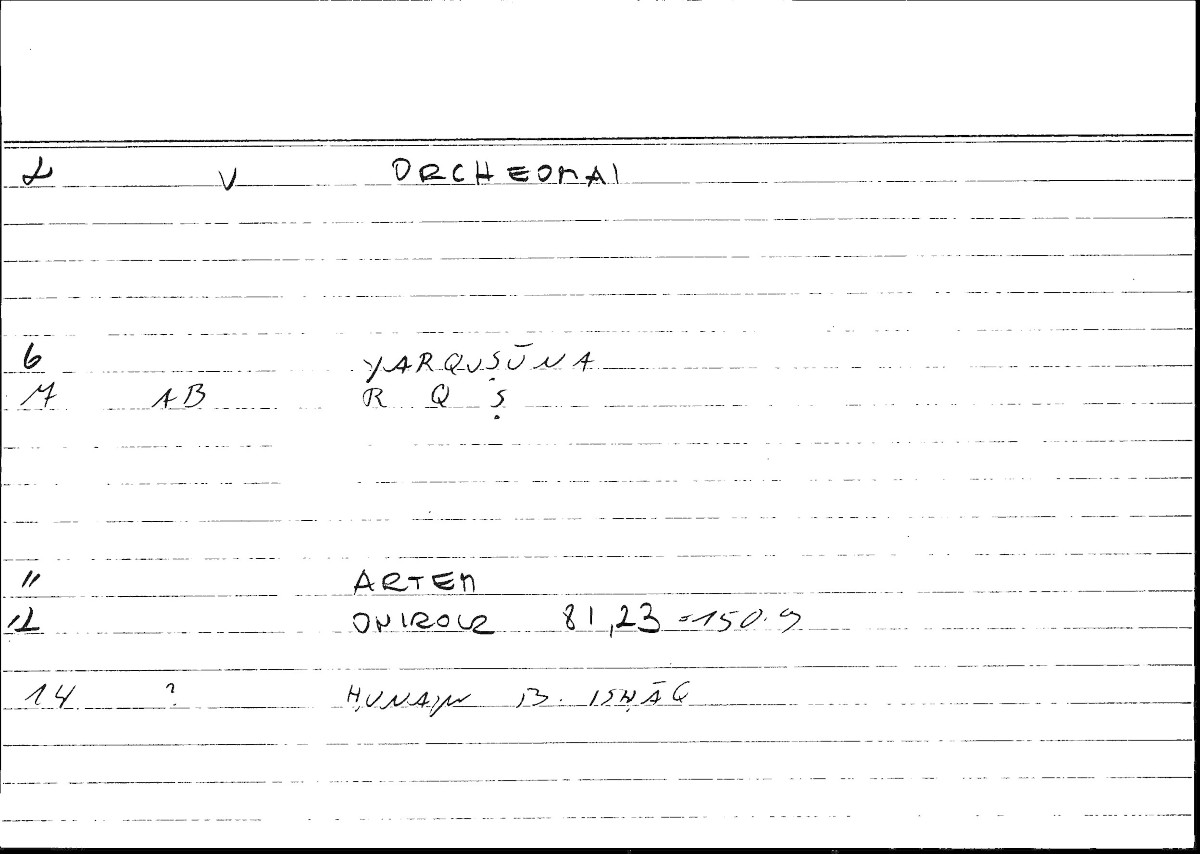 2 V ORCHEOMAI
6 YARQUṢŪNA
7 AB R Q Ṣ
11 ARTEM
12 ONIROCR 81,23 =150.9
14 ? ḤUNAJN B. ISḤĀQ